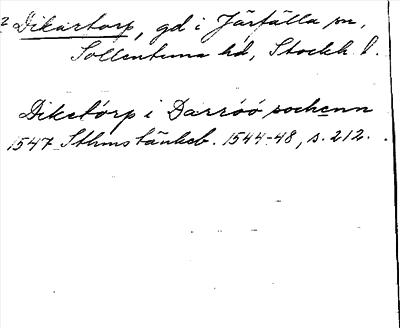 2 Dikartorp, gd i Järfälla sn,
Sollentuna hd, Stockh. l.
Diketorp i Darröö sochenn
1547 Sthms tänkeb. 1544-48, s. 212.